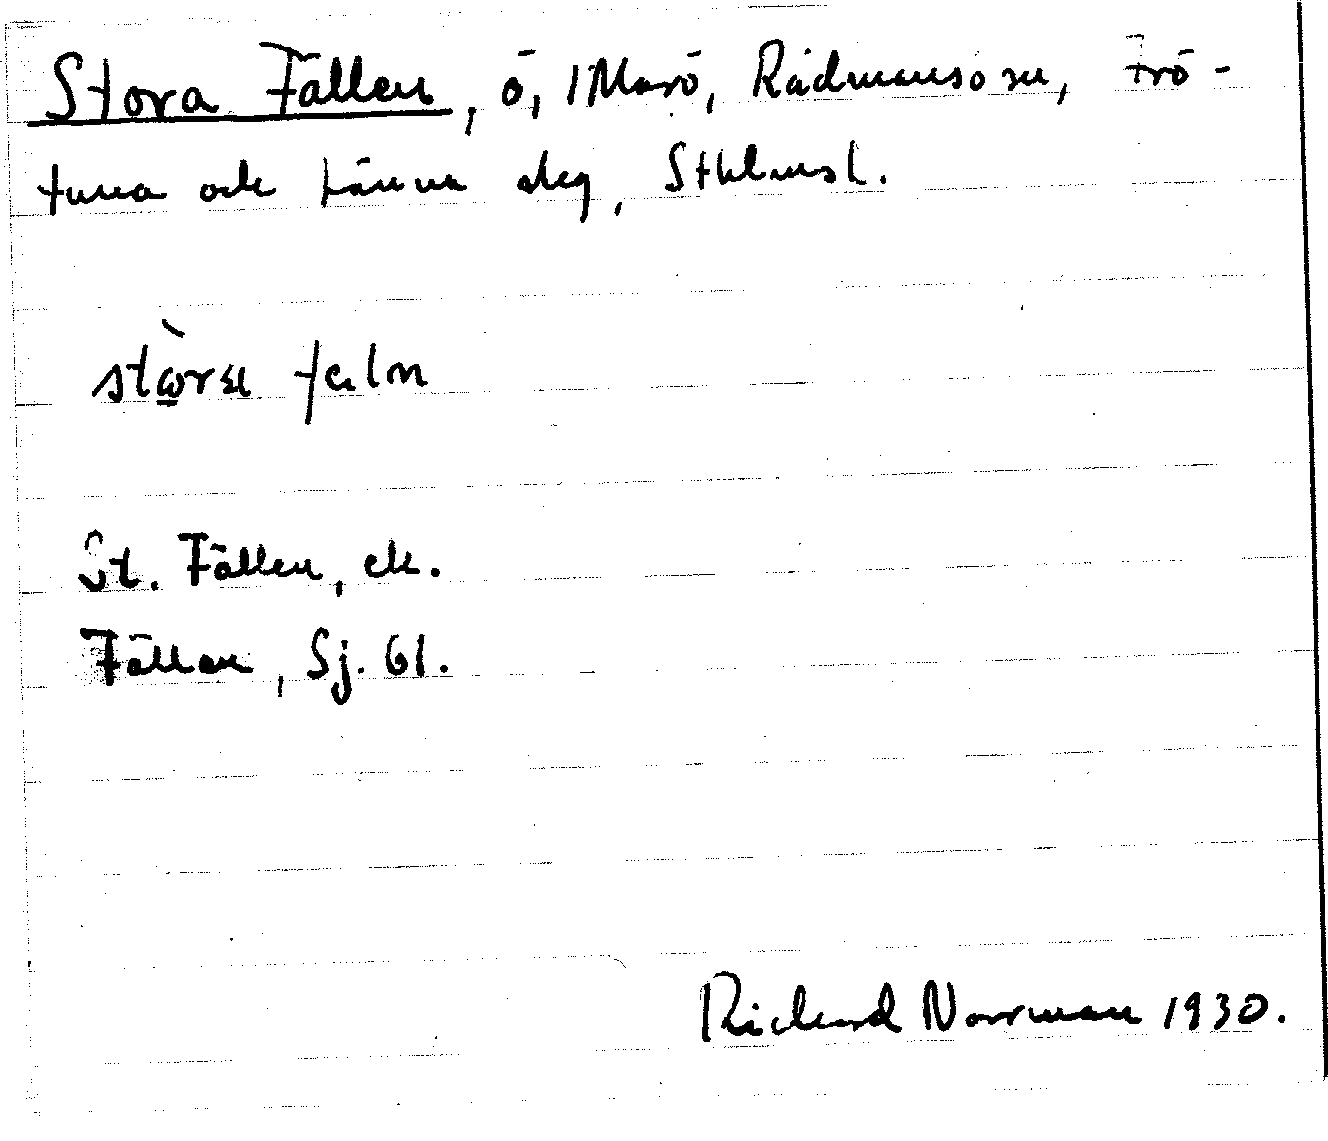 Stora Fällen, ö, 1 Marö, Rådmansö sn, Frö-
tuna och Länna skg, Sthlmsl.
St. Fällen, ek.
Fällan, Sj. 61.
Richard Norrman 1930.